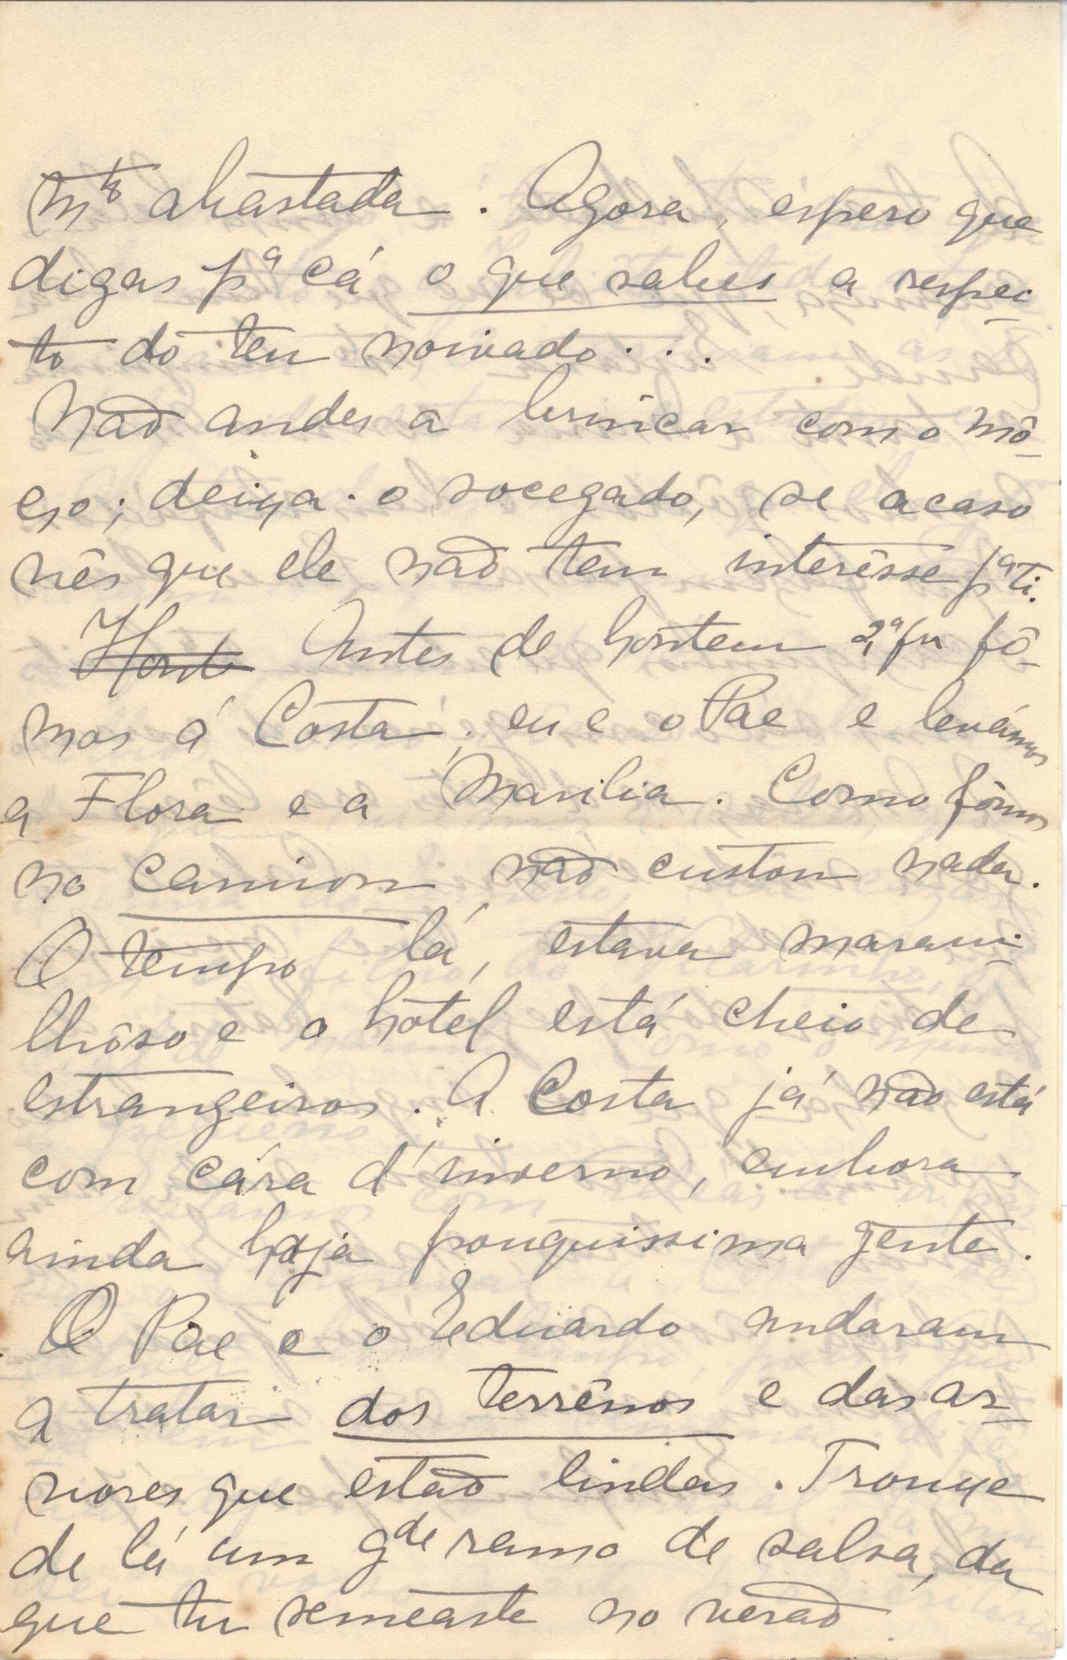 mto abastada. Agora, espero que
digas pª cá o que sabes a respei-
to do teu noivado...
Não andes a brincar com o mô-
ço; deixa-o socegado, se acaso
vês que ele não tem interêsse pª ti.
Hont Antes de hontem 2ª fª fô-
mos á Costa, eu e o Pae e levámos
a Flora e a Marilia. Como fômos
no camion não custou nada.
O tempo lá, estava maravi-
lhôso e o hotel está cheio de
estrangeiros. A Costa já não está
com cára d'inverno, embora
ainda haja pouquissima gente.
O Pae e o Eduardo andaram
a tratar dos terrênos e das ar-
vores que estão lindas. Trouxe
de lá um gde ramo de salsa, da
que tu semeaste no verão